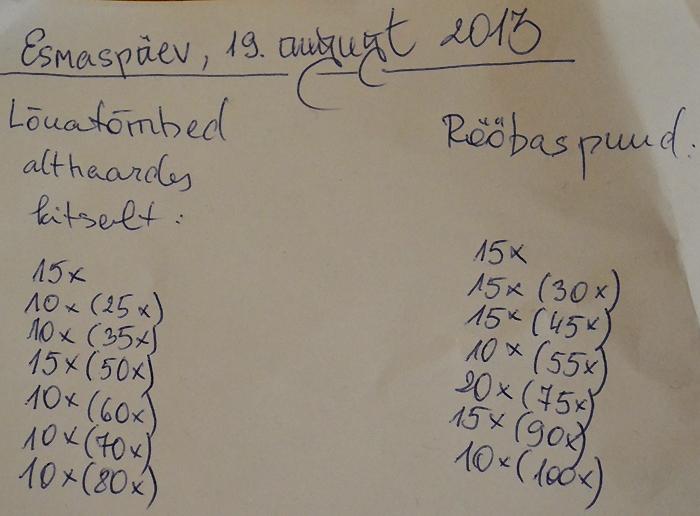 Esmaspäev, 19. august 2013
Lõuatõmbed
althaardes
kitsalt:
15x
10x (25x)
10x (35x)
15x (50x)
10x (60x)
10x (70x)
10x (80x)
Rööbaspuud:
15x
15x (30x)
15x (45x)
10x (55x)
20x (75x)
15x (90x)
10x (100x)